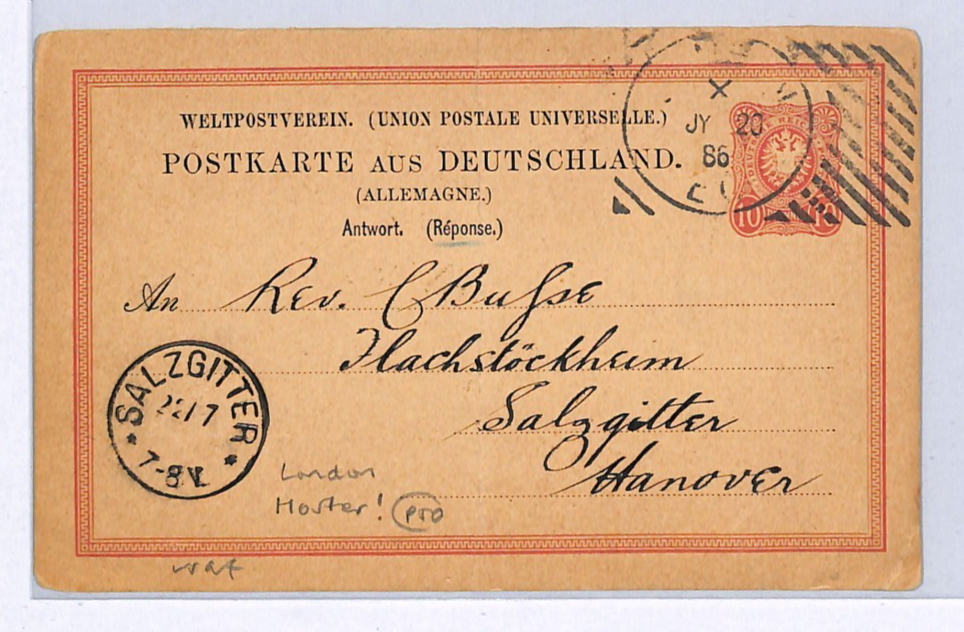 WELTPOSTVEREIN. (UNION POSTALE UNIVERSELLE.)
POSTKARTE AUS DEUTSCHLAND.
(ALLEMAGNE.)
Antwort. (Réponse.)
X
JY 20
86
DEUTSCHE REICHS
10 10
An Rev. C Busse
Flachstöckheim
Salzgitter
Hanover
SALZGITTER
22/7
7-8 V.
London
Hoster!